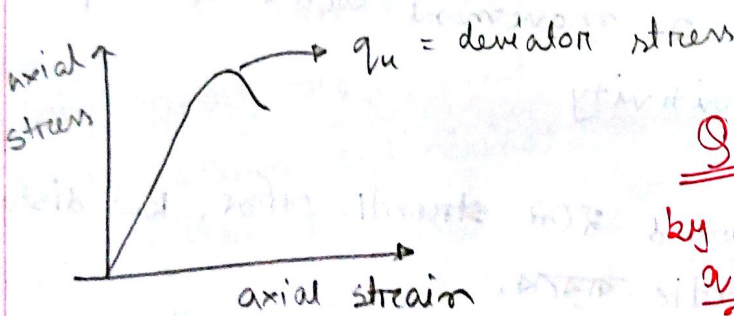 axial
stress
qu = deviator stress
by
axial strain